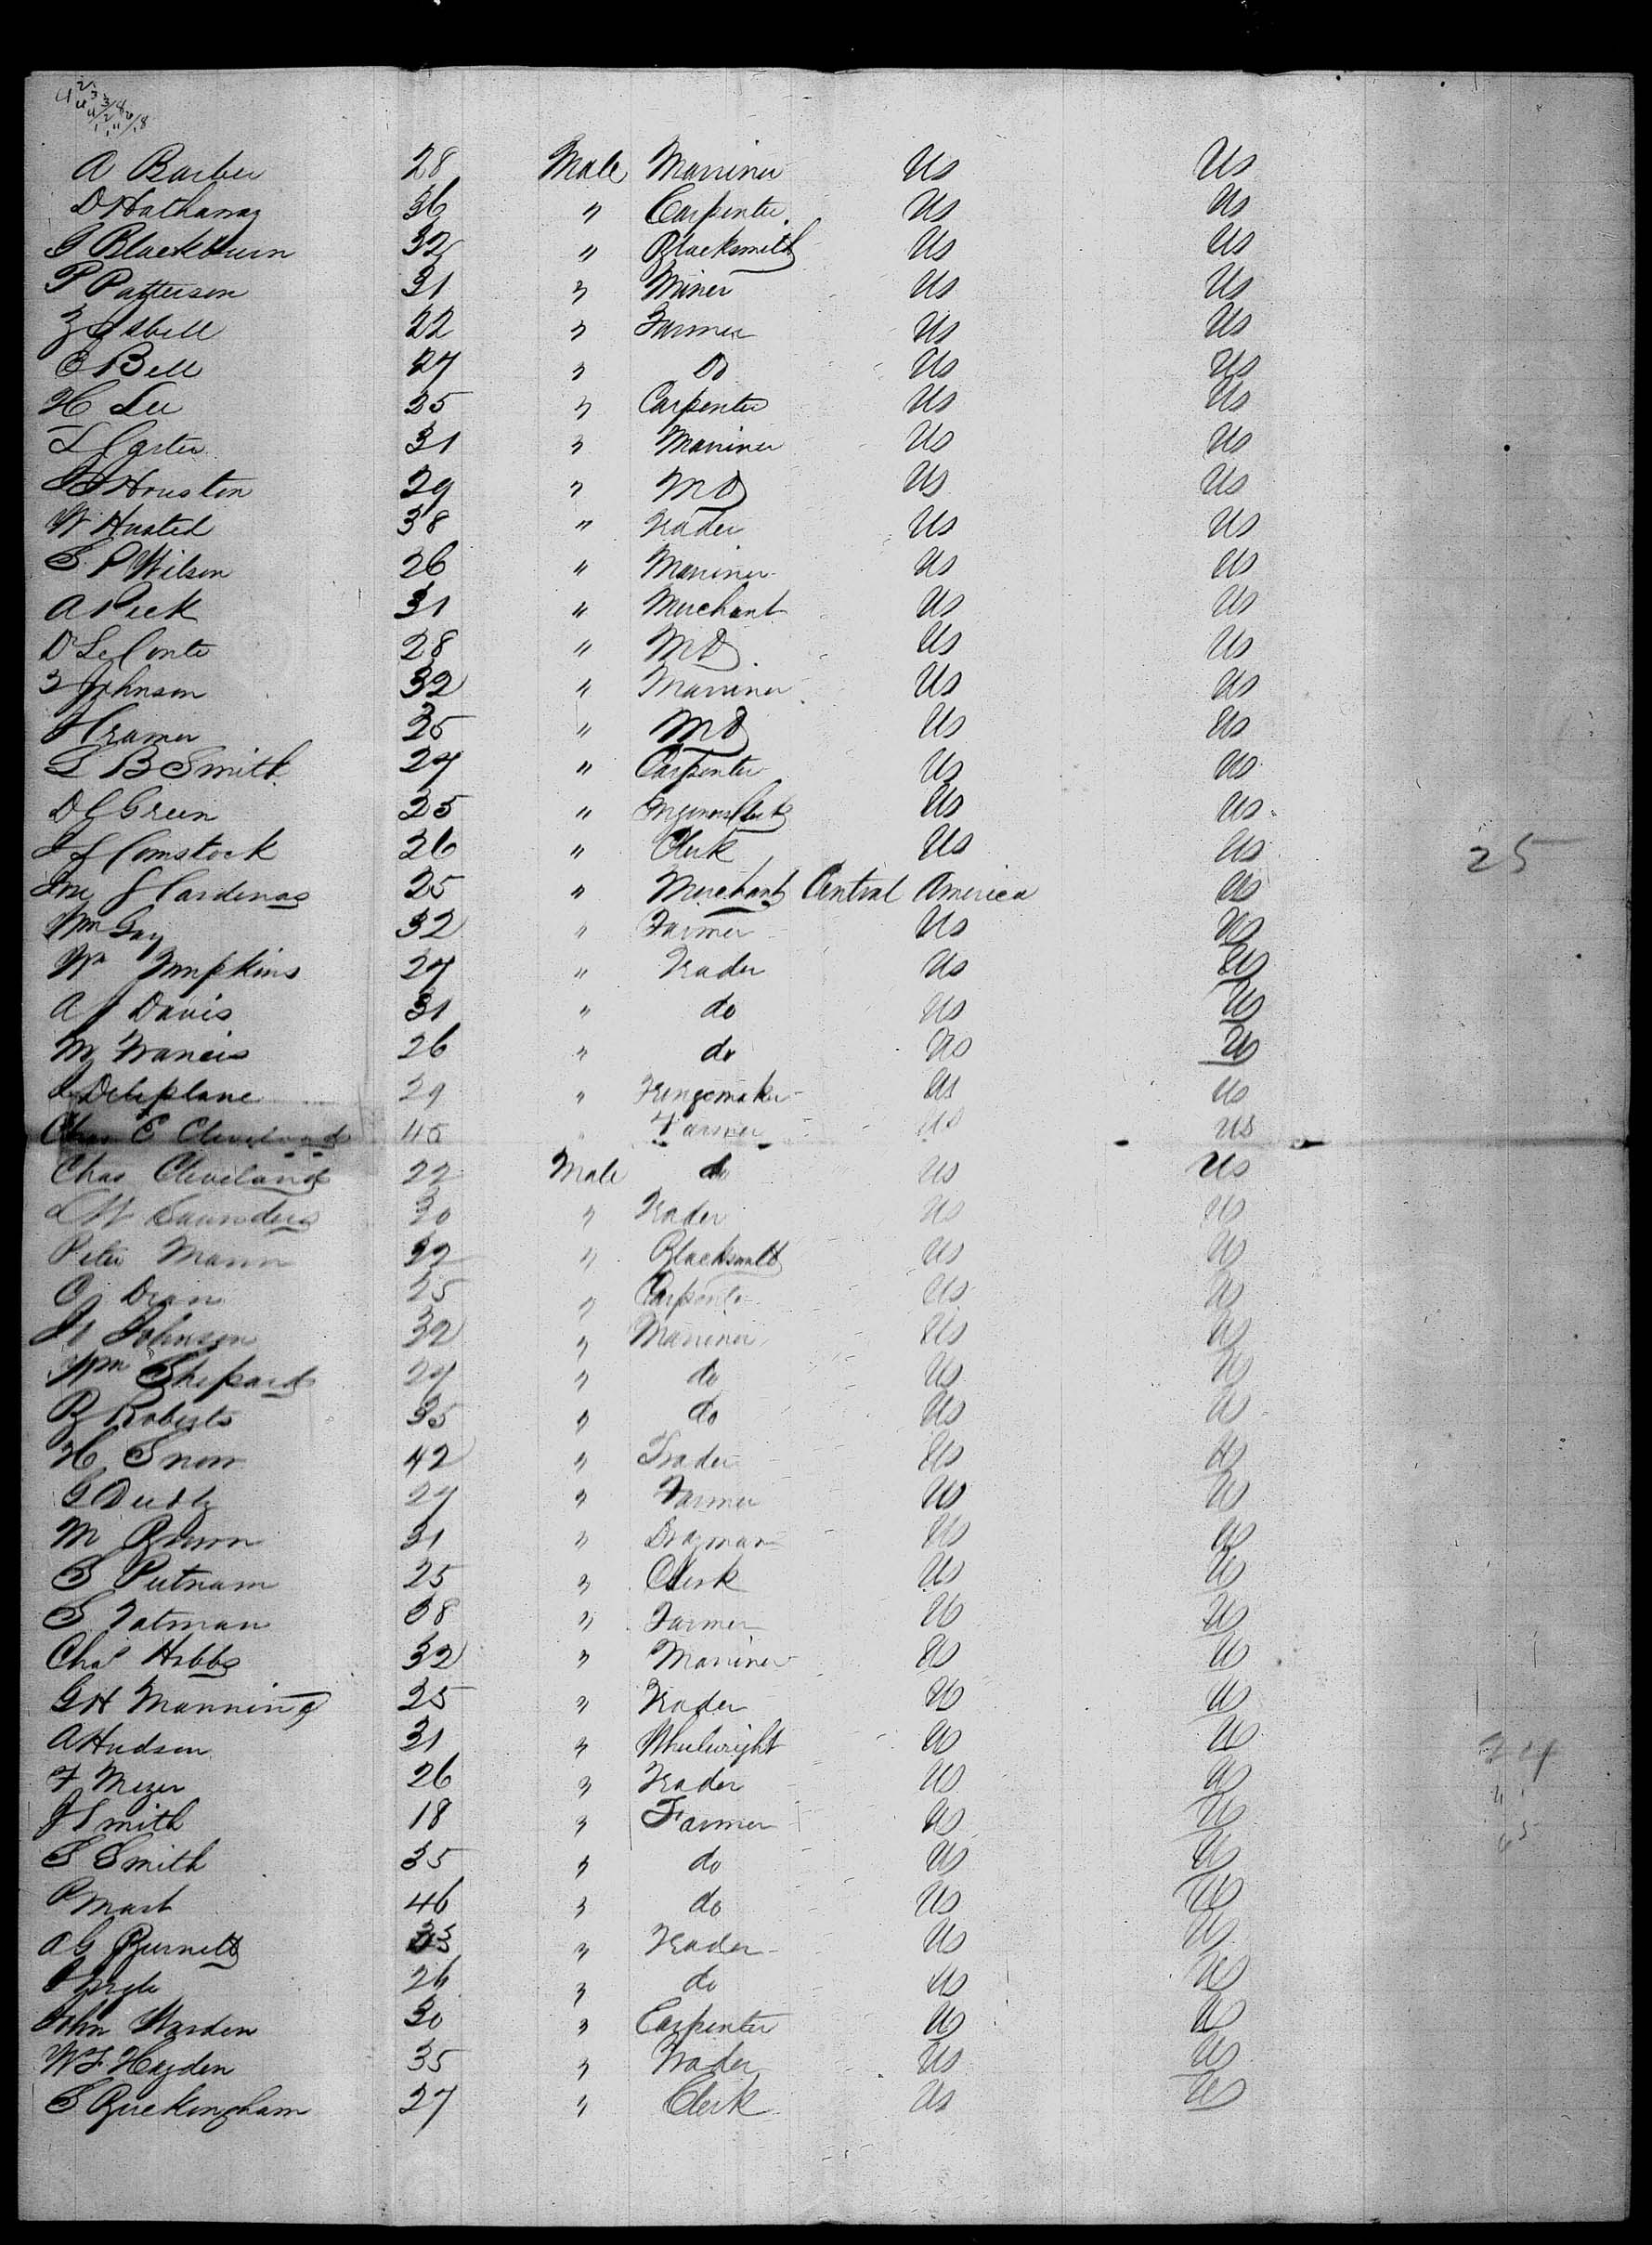 A Barber 28 Male Marriner Us Us
D Hathaway 36 " Carpenter Us Us
G Blackburn 32 " Blacksmith Us Us
P Patterson 31 " Miner Us Us
Z Isbell 22 " Farmer Us Us
E Bell 27 " Do Us Us
H Lee 25 " Carpenter Us Us
L Carter 31 " Marriner Us Us
Houston 29 " MD Us Us
W Husted 38 " Trader Us Us
S P Wilson 26 " Marriner Us Us
A Peck 31 " Merchant Us Us
D LeConte 28 " MD Us Us
Johnson 32 " Marriner Us Us
Kramer 35 " MD Us Us
L B Smith 27 " Carpenter Us Us
D C Green 25 " Us Us
Comstock 26 " Clerk Us Us
25
Cardenas 25 " Merchant Central America Us
Wm Gay 32 " Farmer Us Us
Wm Tompkins 27 " Trader Us Us
A J Davis 31 " do Us Us
M Francis 26 " do Us Us
Deliplane 29 " Fringemaker Us Us
Chas E Cleveland 45 " Farmer Us Us
Chas Cleveland 22 Male do Us Us
L W Saunders 30 " Trader Us Us
Peter Mann 32 " Blacksmith Us Us
O Dean 25 " Carpenter Us Us
Johnson 32 " Marriner Us Us
Wm Shepard 27 " do Us Us
B Roberts 35 " do Us Us
H Snow 42 " Trader Us Us
G 27 " Farmer Us Us
M Brown 31 " Drayman Us Us
S Putnam 25 " Clerk Us Us
S Tatman 38 " Farmer Us Us
Chas Hobbs 32 " Marriner Us Us
G H Manning 25 " Trader Us Us
A Hudson 31 " Wheelwright Us Us
F Mezer 26 " Trader Us Us
J Smith 18 " Farmer Us Us
S Smith 35 " do Us Us
P Mart 46 " do Us Us
A G Burnett " Trader Us Us
26 " do Us Us
John Warden 30 " Carpenter Us Us
W F Hayden 35 " Trader Us Us
S Buckingham 27 " Clerk Us Us